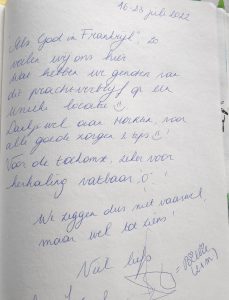 16-23 juli 2022
"Als God in Frankrijk", zo
voelen wij ons hier
wat hebben we genoten van
dit prachtverblijf op een
unieke locatie ☺
Dankjewel aan voor
alle goede zorgen & tips
Voor de toekomst, zeker voor
herhaling vatbaar!
We zeggen dus niet vaarwel,
maar wel tot ziens!
Veel liefs